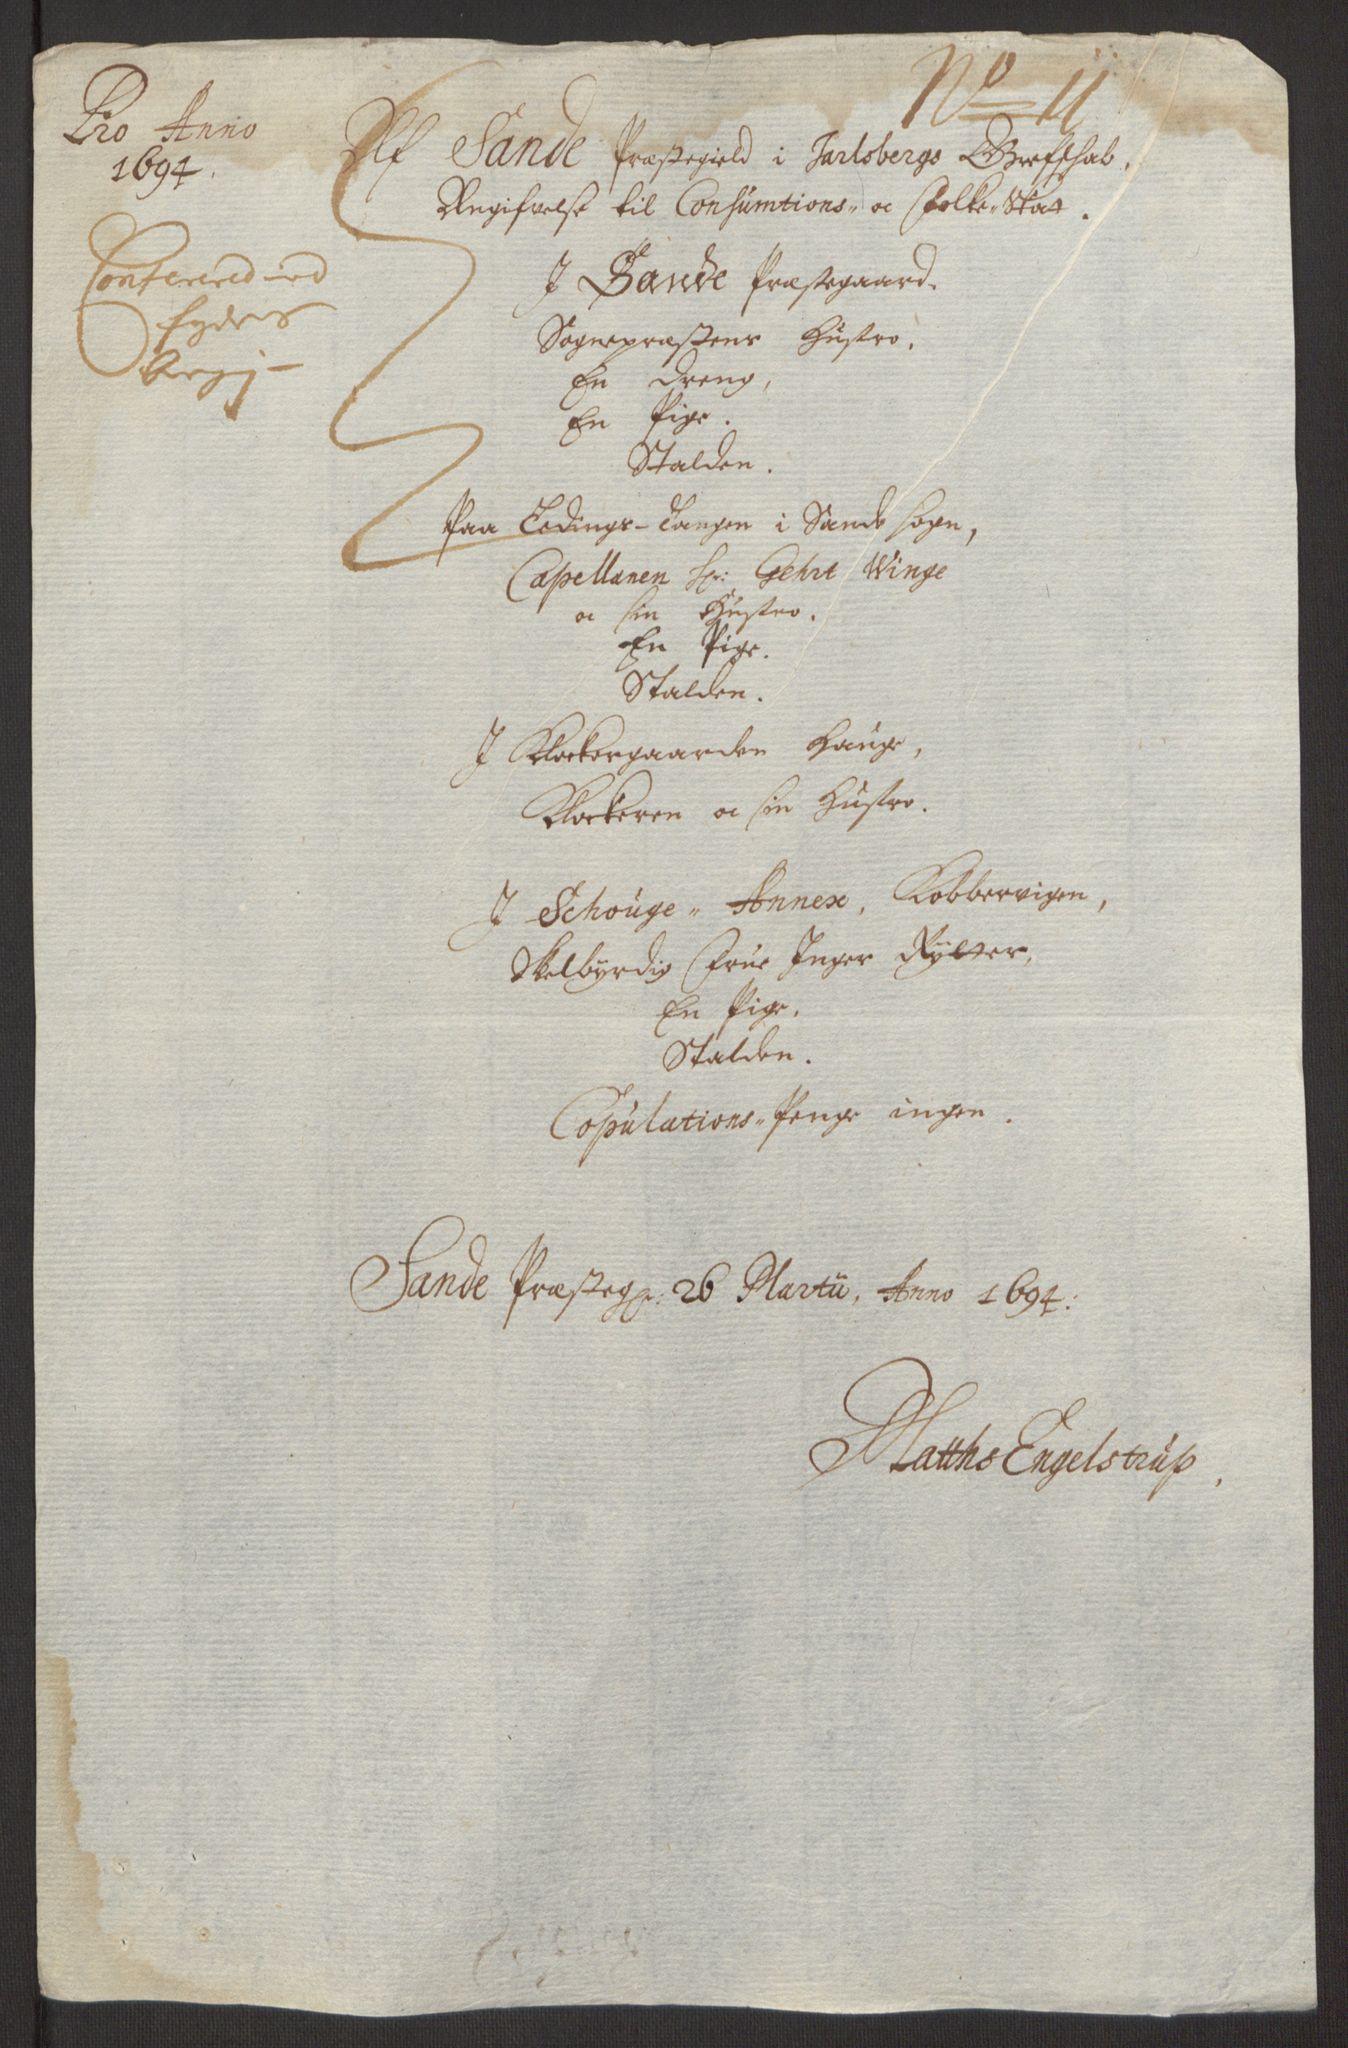 No 11
Pro Anno
1694.
Af Sande Præstegield i Jarlsbergs Grefschab,
Angifvelse til Consumtions- oc Folke-Skatt.
J Sande Præstegaard.
Sognepræstens Hustro.
En Dreng,
En Pige.
Stalden.
Paa Tedings-Tangen i Sande sogn,
Capellanen Hr: Gehrt Winge
oc sin Hustro.
En Pige.
Stalden.
J Klockergaarden Hauge,
Klockeren oc sin Hustro.
J Schouge-Annex, Kobbervigen,
Velbyrdig Frue Inger Rytter,
En Pige.
Stalden.
Copulations-Penge ingen.
Sande Præsteg: 26 Martii, Anno 1694:
Matths Engelstrup.